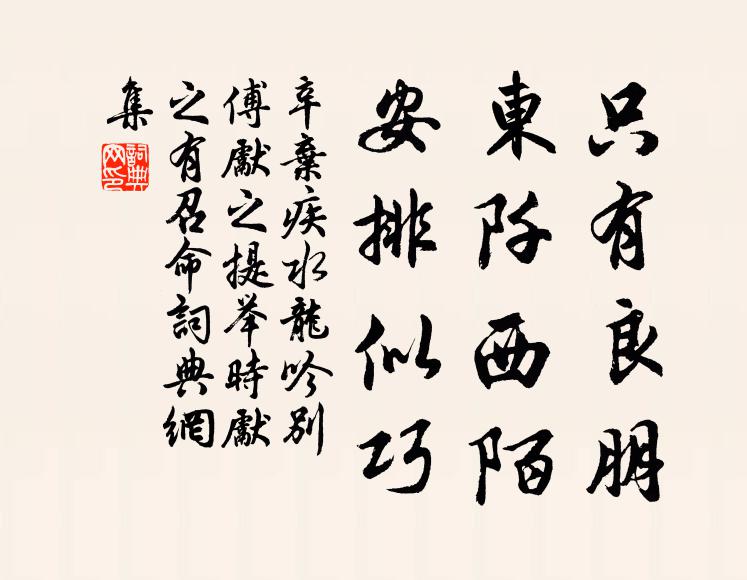 只有良朋
東阡西陌
安排似巧
辛棄疾水龍吟別
傅獻之提举時獻
之有召命詞典網
集
詞典網印